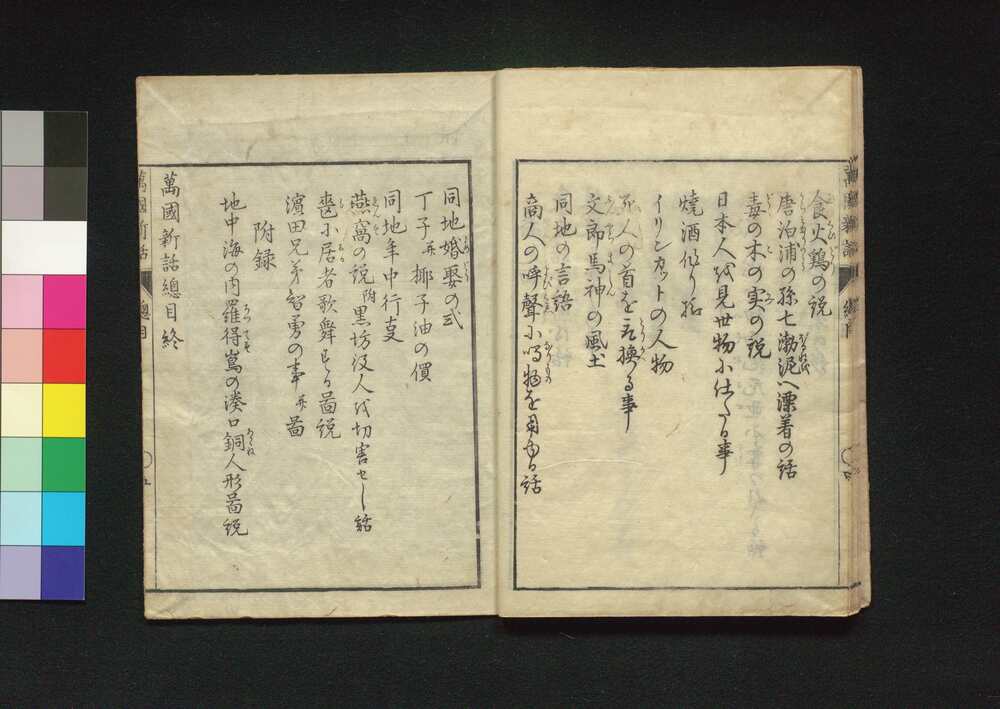 食火鶏の説
唐泊浦の孫七渤泥へ漂着の話
毒の木の実の説
日本人を見世物に仕たる事
焼酒作り様
イリンカットの人物
人の首を取換る事
文郎馬神の風土
同地の言語
商人の呼聲に鳴物を用ゆる話
同地婚娶の式
丁子并椰子油の價
同地年中行事
燕窩の説附黒坊役人を切害せし話
甕に居者歌舞する啚説
濱田兄弟智勇の事并啚
附録
地中海の内羅得嶌の湊口銅人形啚説
萬國新話總目終
萬國新話 總目